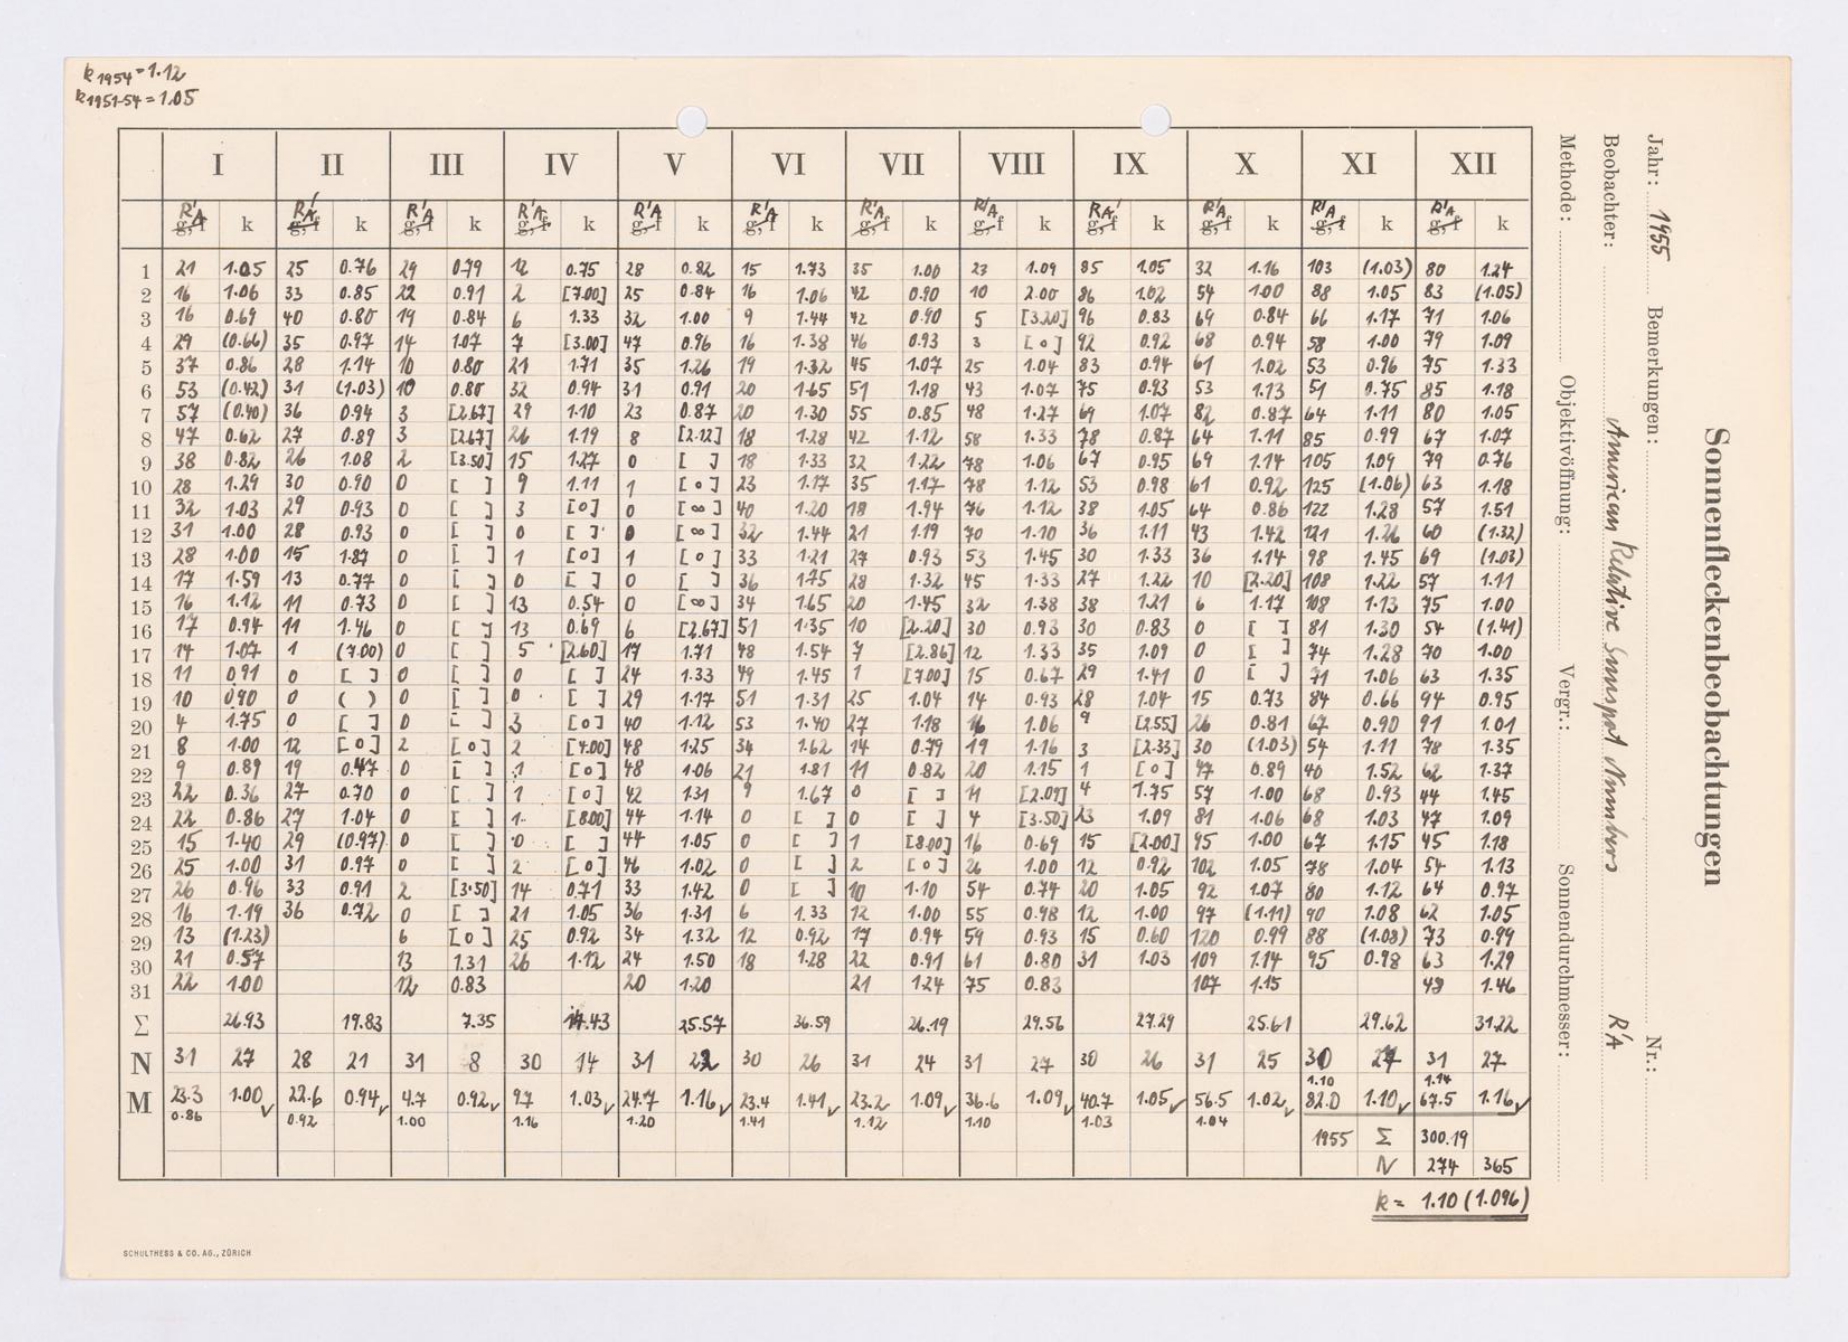 k 1954 = 1.12
k 1951-54 = 1.05
I II III IV V VI VII VIII IX X XI XII
R'A k R'A k R'A k R'A k R'A k R'A k R'A k R'A k RA' k R'A k R'A k R'A k
g, f g, f g, f g, f g, f g, f g, f g, f g, f g, f g, f g, f
1 21 1.05 25 0.76 29 0.79 12 0.75 28 0.82 15 1.73 35 1.00 23 1.09 85 1.05 32 1.16 103 (1.03) 80 1.24
2 16 1.06 33 0.85 22 0.91 2 [7.00] 25 0.84 16 1.06 42 0.90 10 2.00 86 1.02 54 1.00 88 1.05 83 (1.05)
3 16 0.69 40 0.80 19 0.84 6 1.33 32 1.00 9 1.44 42 0.90 5 [3.20] 96 0.83 69 0.84 66 1.17 71 1.06
4 29 (0.66) 35 0.97 14 1.07 7 [3.00] 47 0.96 16 1.38 46 0.93 3 [0] 92 0.92 68 0.94 58 1.00 79 1.09
5 37 0.86 28 1.14 10 0.80 21 1.71 35 1.26 19 1.32 45 1.07 25 1.04 83 0.94 61 1.02 53 0.96 75 1.33
6 53 (0.42) 31 (1.03) 10 0.80 32 0.94 31 0.91 20 1.65 51 1.18 43 1.07 75 0.93 53 1.13 51 0.75 85 1.18
7 57 (0.40) 36 0.94 3 [2.67] 29 1.10 23 0.87 20 1.30 55 0.85 48 1.27 69 1.07 82 0.87 64 1.11 80 1.05
8 47 0.62 27 0.89 3 [2.67] 26 1.19 8 [2.12] 18 1.28 42 1.12 58 1.33 78 0.87 64 1.11 85 0.99 67 1.07
9 38 0.82 26 1.08 2 [3.50] 15 1.27 0 [ ] 18 1.33 32 1.22 78 1.06 67 0.95 69 1.14 105 1.09 79 0.76
10 28 1.29 30 0.90 0 [ ] 9 1.11 1 [0] 23 1.17 35 1.17 78 1.12 53 0.98 61 0.92 125 (1.06) 63 1.18
11 32 1.03 29 0.93 0 [ ] 3 [0] 0 [∞] 40 1.20 18 1.94 76 1.12 38 1.05 64 0.86 122 1.28 57 1.51
12 31 1.00 28 0.93 0 [ ] 0 [ ] 0 [∞] 32 1.44 21 1.19 70 1.10 36 1.11 43 1.42 121 1.26 60 (1.32)
13 28 1.00 15 1.87 0 [ ] 1 [0] 1 [0] 33 1.21 27 0.93 53 1.45 30 1.33 36 1.14 98 1.45 69 (1.03)
14 17 1.59 13 0.77 0 [ ] 0 [ ] 0 [ ] 36 1.75 28 1.32 45 1.33 27 1.22 10 [2.20] 108 1.22 57 1.11
15 16 1.12 11 0.73 0 [ ] 13 0.54 0 [∞] 34 1.65 20 1.45 32 1.38 38 1.21 6 1.17 108 1.13 75 1.00
16 17 0.94 11 1.46 0 [ ] 13 0.69 6 [2.67] 51 1.35 10 [2.20] 30 0.93 30 0.83 0 [ ] 81 1.30 54 (1.41)
17 14 1.07 1 (7.00) 0 [ ] 5 [2.60] 17 1.71 48 1.54 7 [2.86] 12 1.33 35 1.09 0 [ ] 74 1.28 70 1.00
18 11 0.91 0 [ ] 0 [ ] 0 [ ] 24 1.33 49 1.45 1 [7.00] 15 0.67 29 1.41 0 [ ] 71 1.06 63 1.35
19 10 0.90 0 ( ) 0 [ ] 0 [ ] 29 1.17 51 1.31 25 1.04 14 0.93 28 1.04 15 0.73 84 0.66 94 0.95
20 4 1.75 0 [ ] 0 [ ] 3 [0] 40 1.12 53 1.40 27 1.18 16 1.06 9 [2.55] 26 0.81 67 0.90 91 1.01
21 8 1.00 12 [0] 2 [0] 2 [4.00] 48 1.25 34 1.62 14 0.79 19 1.16 3 [2.33] 30 (1.03) 54 1.11 78 1.35
22 9 0.89 19 0.47 0 [ ] 1 [0] 48 1.06 21 1.81 11 0.82 20 1.15 1 [0] 47 0.89 40 1.52 62 1.37
23 22 0.36 27 0.70 0 [ ] 1 [0] 42 1.31 9 1.67 0 [ ] 11 [2.09] 4 1.75 57 1.00 68 0.93 44 1.45
24 22 0.86 27 1.04 0 [ ] 1 [8.00] 44 1.14 0 [ ] 0 [ ] 4 [3.50] 23 1.09 81 1.06 68 1.03 47 1.09
25 15 1.40 29 (0.97) 0 [ ] 0 [ ] 44 1.05 0 [ ] 1 [8.00] 16 0.69 15 [2.00] 95 1.00 67 1.15 45 1.18
26 25 1.00 31 0.97 0 [ ] 2 [0] 46 1.02 0 [ ] 2 [0] 26 1.00 12 0.92 102 1.05 78 1.04 54 1.13
27 26 0.96 33 0.91 2 [3.50] 14 0.71 33 1.42 0 [ ] 10 1.10 54 0.74 20 1.05 92 1.07 80 1.12 64 0.97
28 16 1.19 36 0.72 0 [ ] 21 1.05 36 1.31 6 1.33 12 1.00 55 0.98 12 1.00 97 (1.11) 90 1.08 62 1.05
29 13 (1.23) 6 [0] 25 0.92 34 1.32 12 0.92 17 0.94 59 0.93 15 0.60 120 0.99 88 (1.08) 73 0.99
30 21 0.57 13 1.31 26 1.12 24 1.50 18 1.28 22 0.91 61 0.80 31 1.03 109 1.14 95 0.98 63 1.29
31 22 1.00 12 0.83 20 1.20 21 1.24 75 0.83 107 1.15 48 1.46
Σ 26.93 19.83 7.35 14.43 25.57 36.59 26.19 29.56 27.29 25.61 29.62 31.22
N 31 27 28 21 31 8 30 14 31 22 30 26 31 24 31 27 30 26 31 25 30 27 31 27
1.10 1.14
M 23.3 1.00✓ 22.6 0.94✓ 4.7 0.92✓ 9.7 1.03✓ 24.7 1.16✓ 23.4 1.41✓ 23.2 1.09✓ 36.6 1.09✓ 40.7 1.05✓ 56.5 1.02✓ 82.0 1.10✓ 67.5 1.16✓
0.86 0.92 1.00 1.16 1.20 1.41 1.12 1.10 1.03 1.04
1955 Σ 300.19
N 274 365
k = 1.10 (1.096)
SCHULTHESS & CO. AG., ZÜRICH
Sonnenfleckenbeobachtungen
Jahr: 1955 Bemerkungen: Nr.:
Beobachter: American Relative Sunspot Numbers R'A
Methode: Objektivöffnung: Vergr.: Sonnendurchmesser: